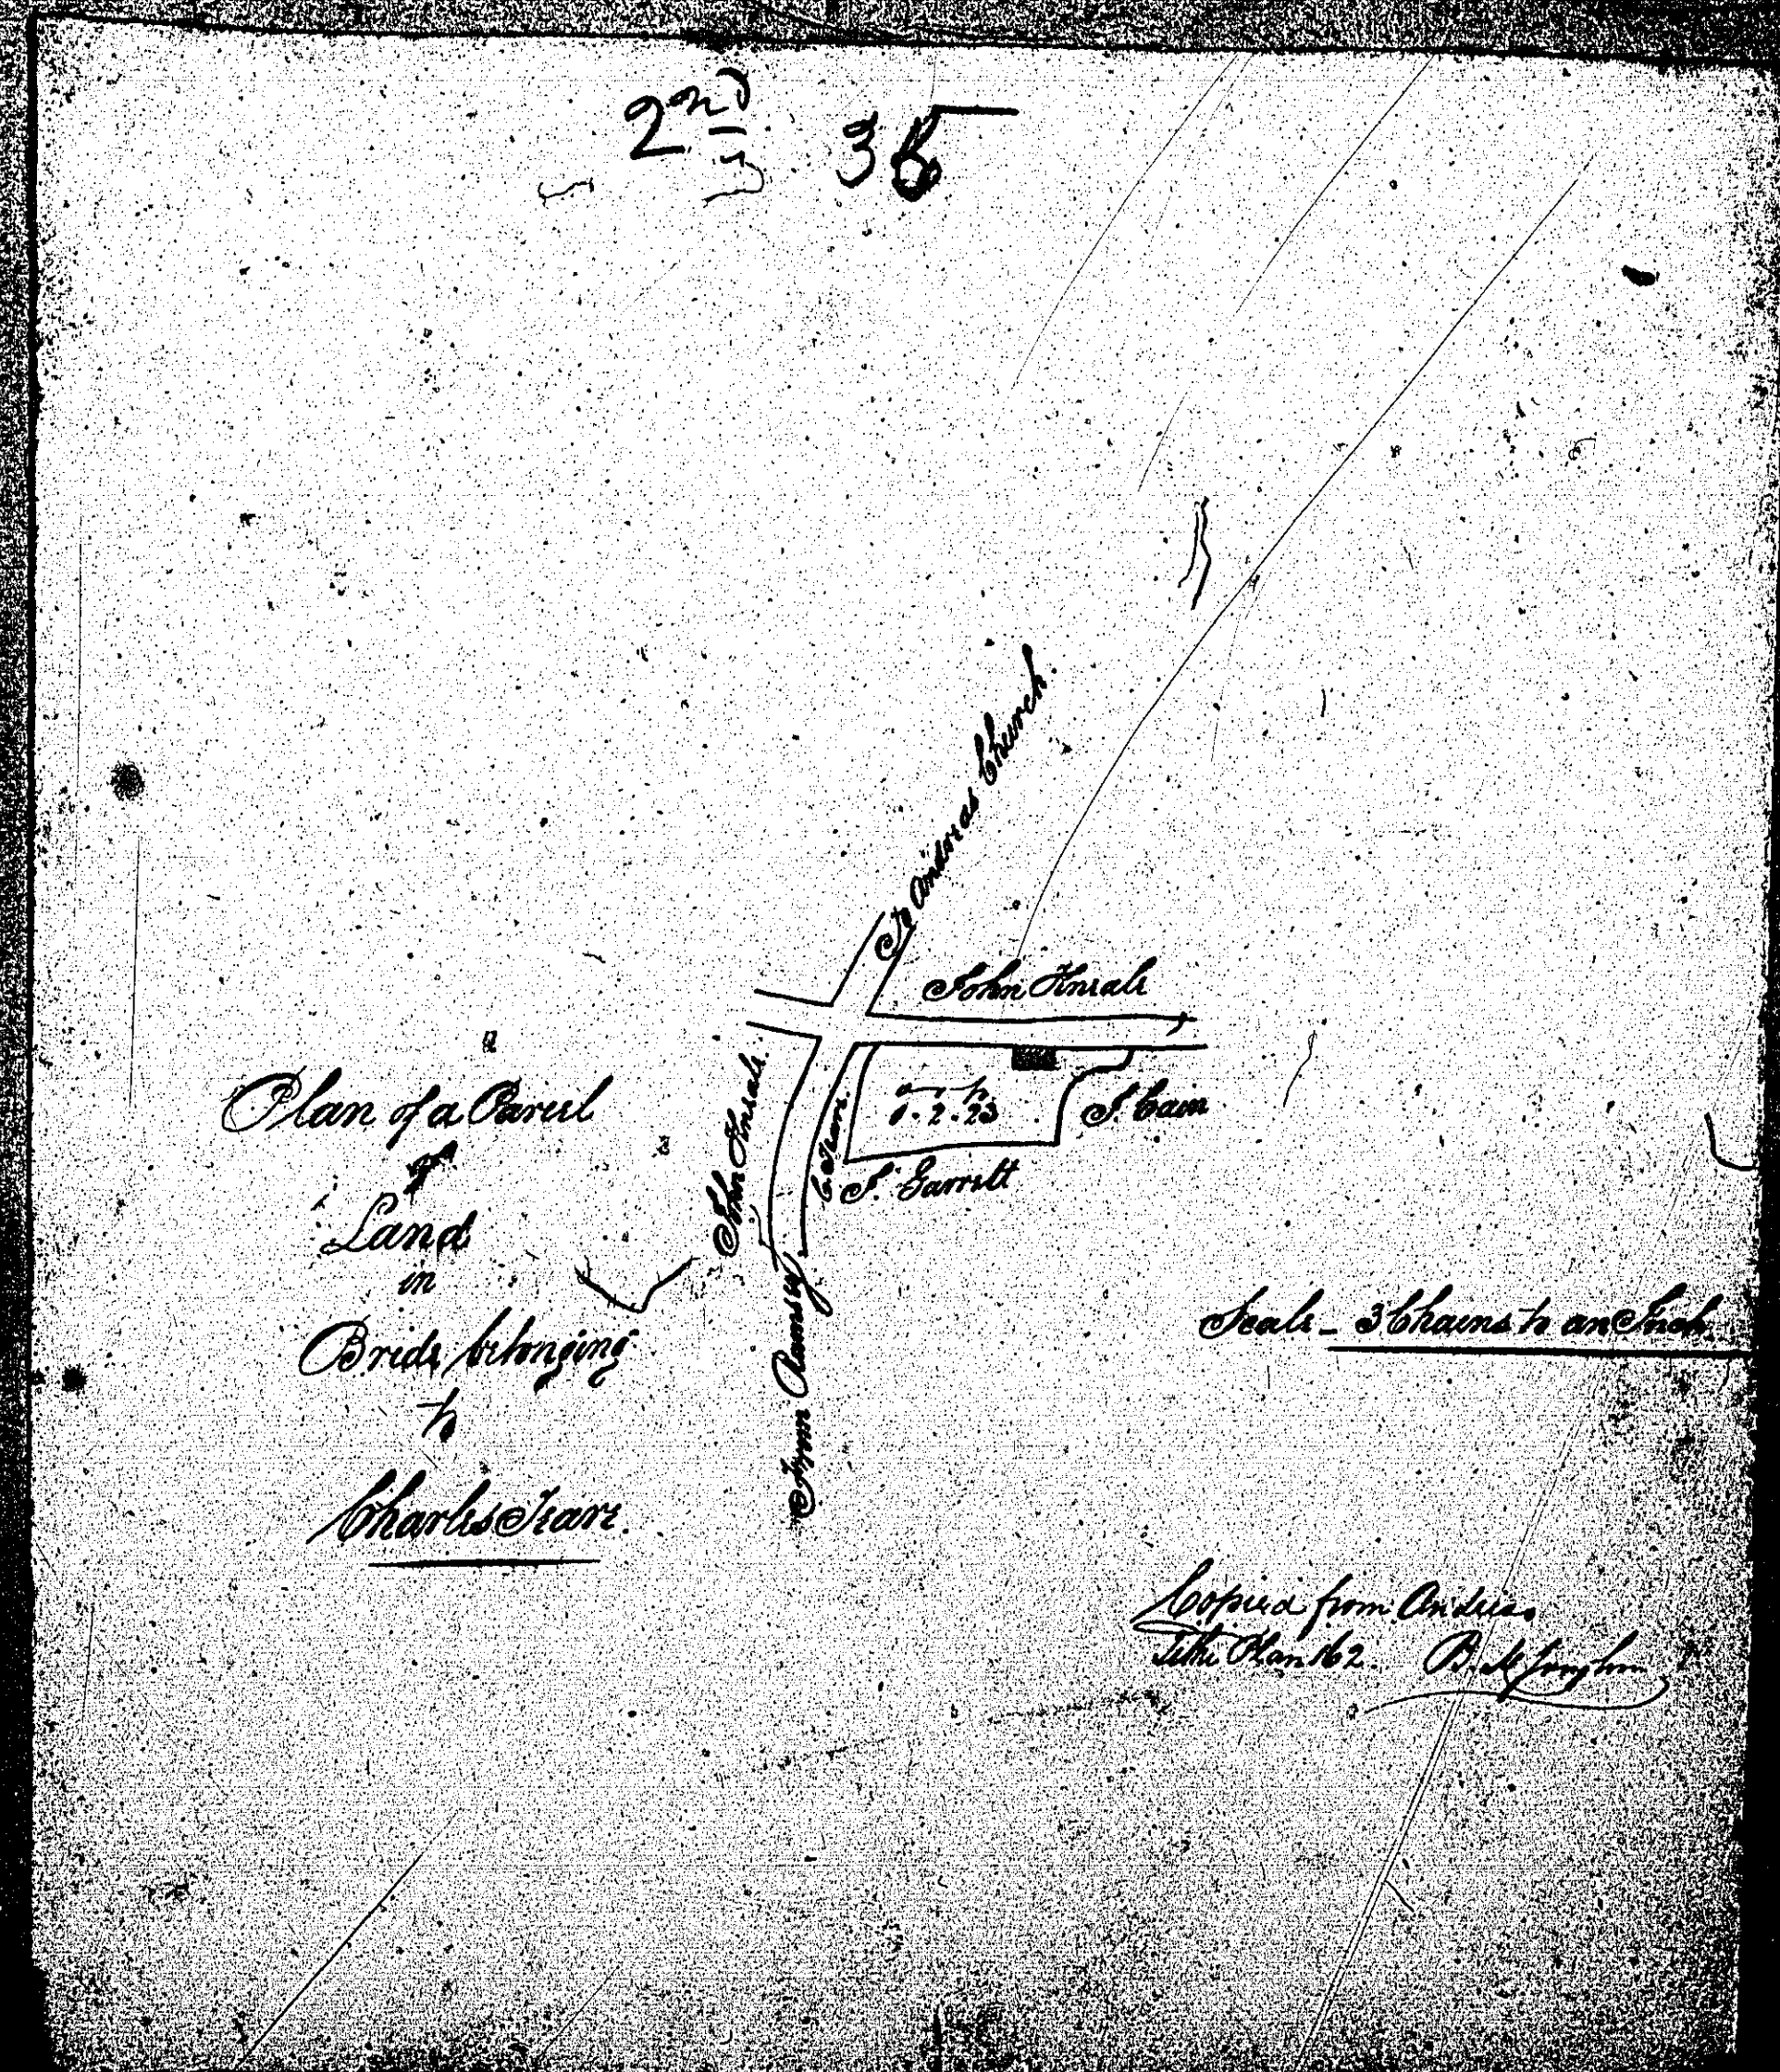 2nd 35
To Andreas Church.
John Kneale
John Kneale.
a r p
0. 2. 23
J. Cain
C. Teare.
J. Garrett
From Ramsey.
Plan of a Parcel
of
Land
in
Bride, belonging
to
Charles Teare.
Scale - 3 Chains to an Inch.
Copied from Andreas
Tithe Plan 162.